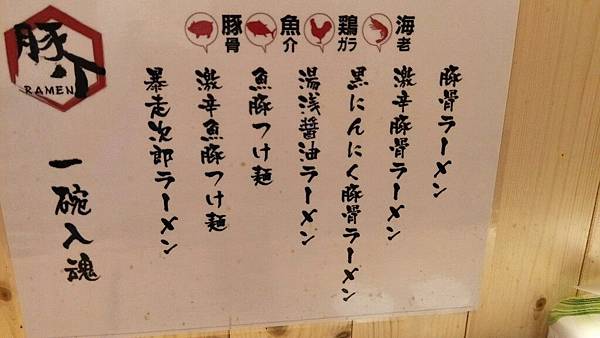 海老
鶏ガラ
魚介
豚骨
豚骨ラーメン
激辛豚骨ラーメン
黒にんにく豚骨ラーメン
湯浅醤油ラーメン
魚豚つけ麺
激辛魚豚つけ麺
暴走次郎ラーメン
豚介
RAMEN
一碗入魂